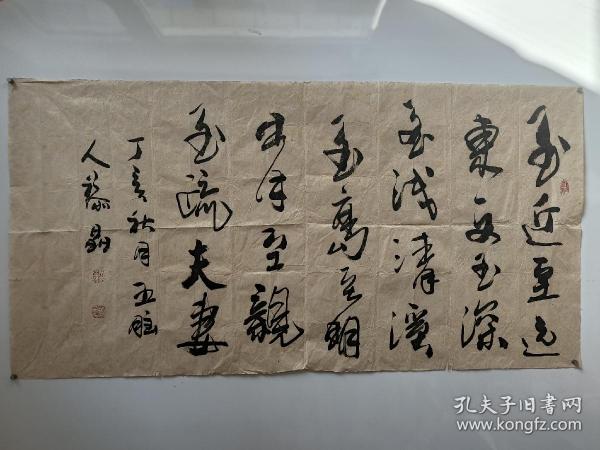 至近至遠
東西至深
至浅清溪
至高至明
日月至親
至疏夫妻
丁亥秋月五
人
孔夫子旧书网
www.kongfz.com